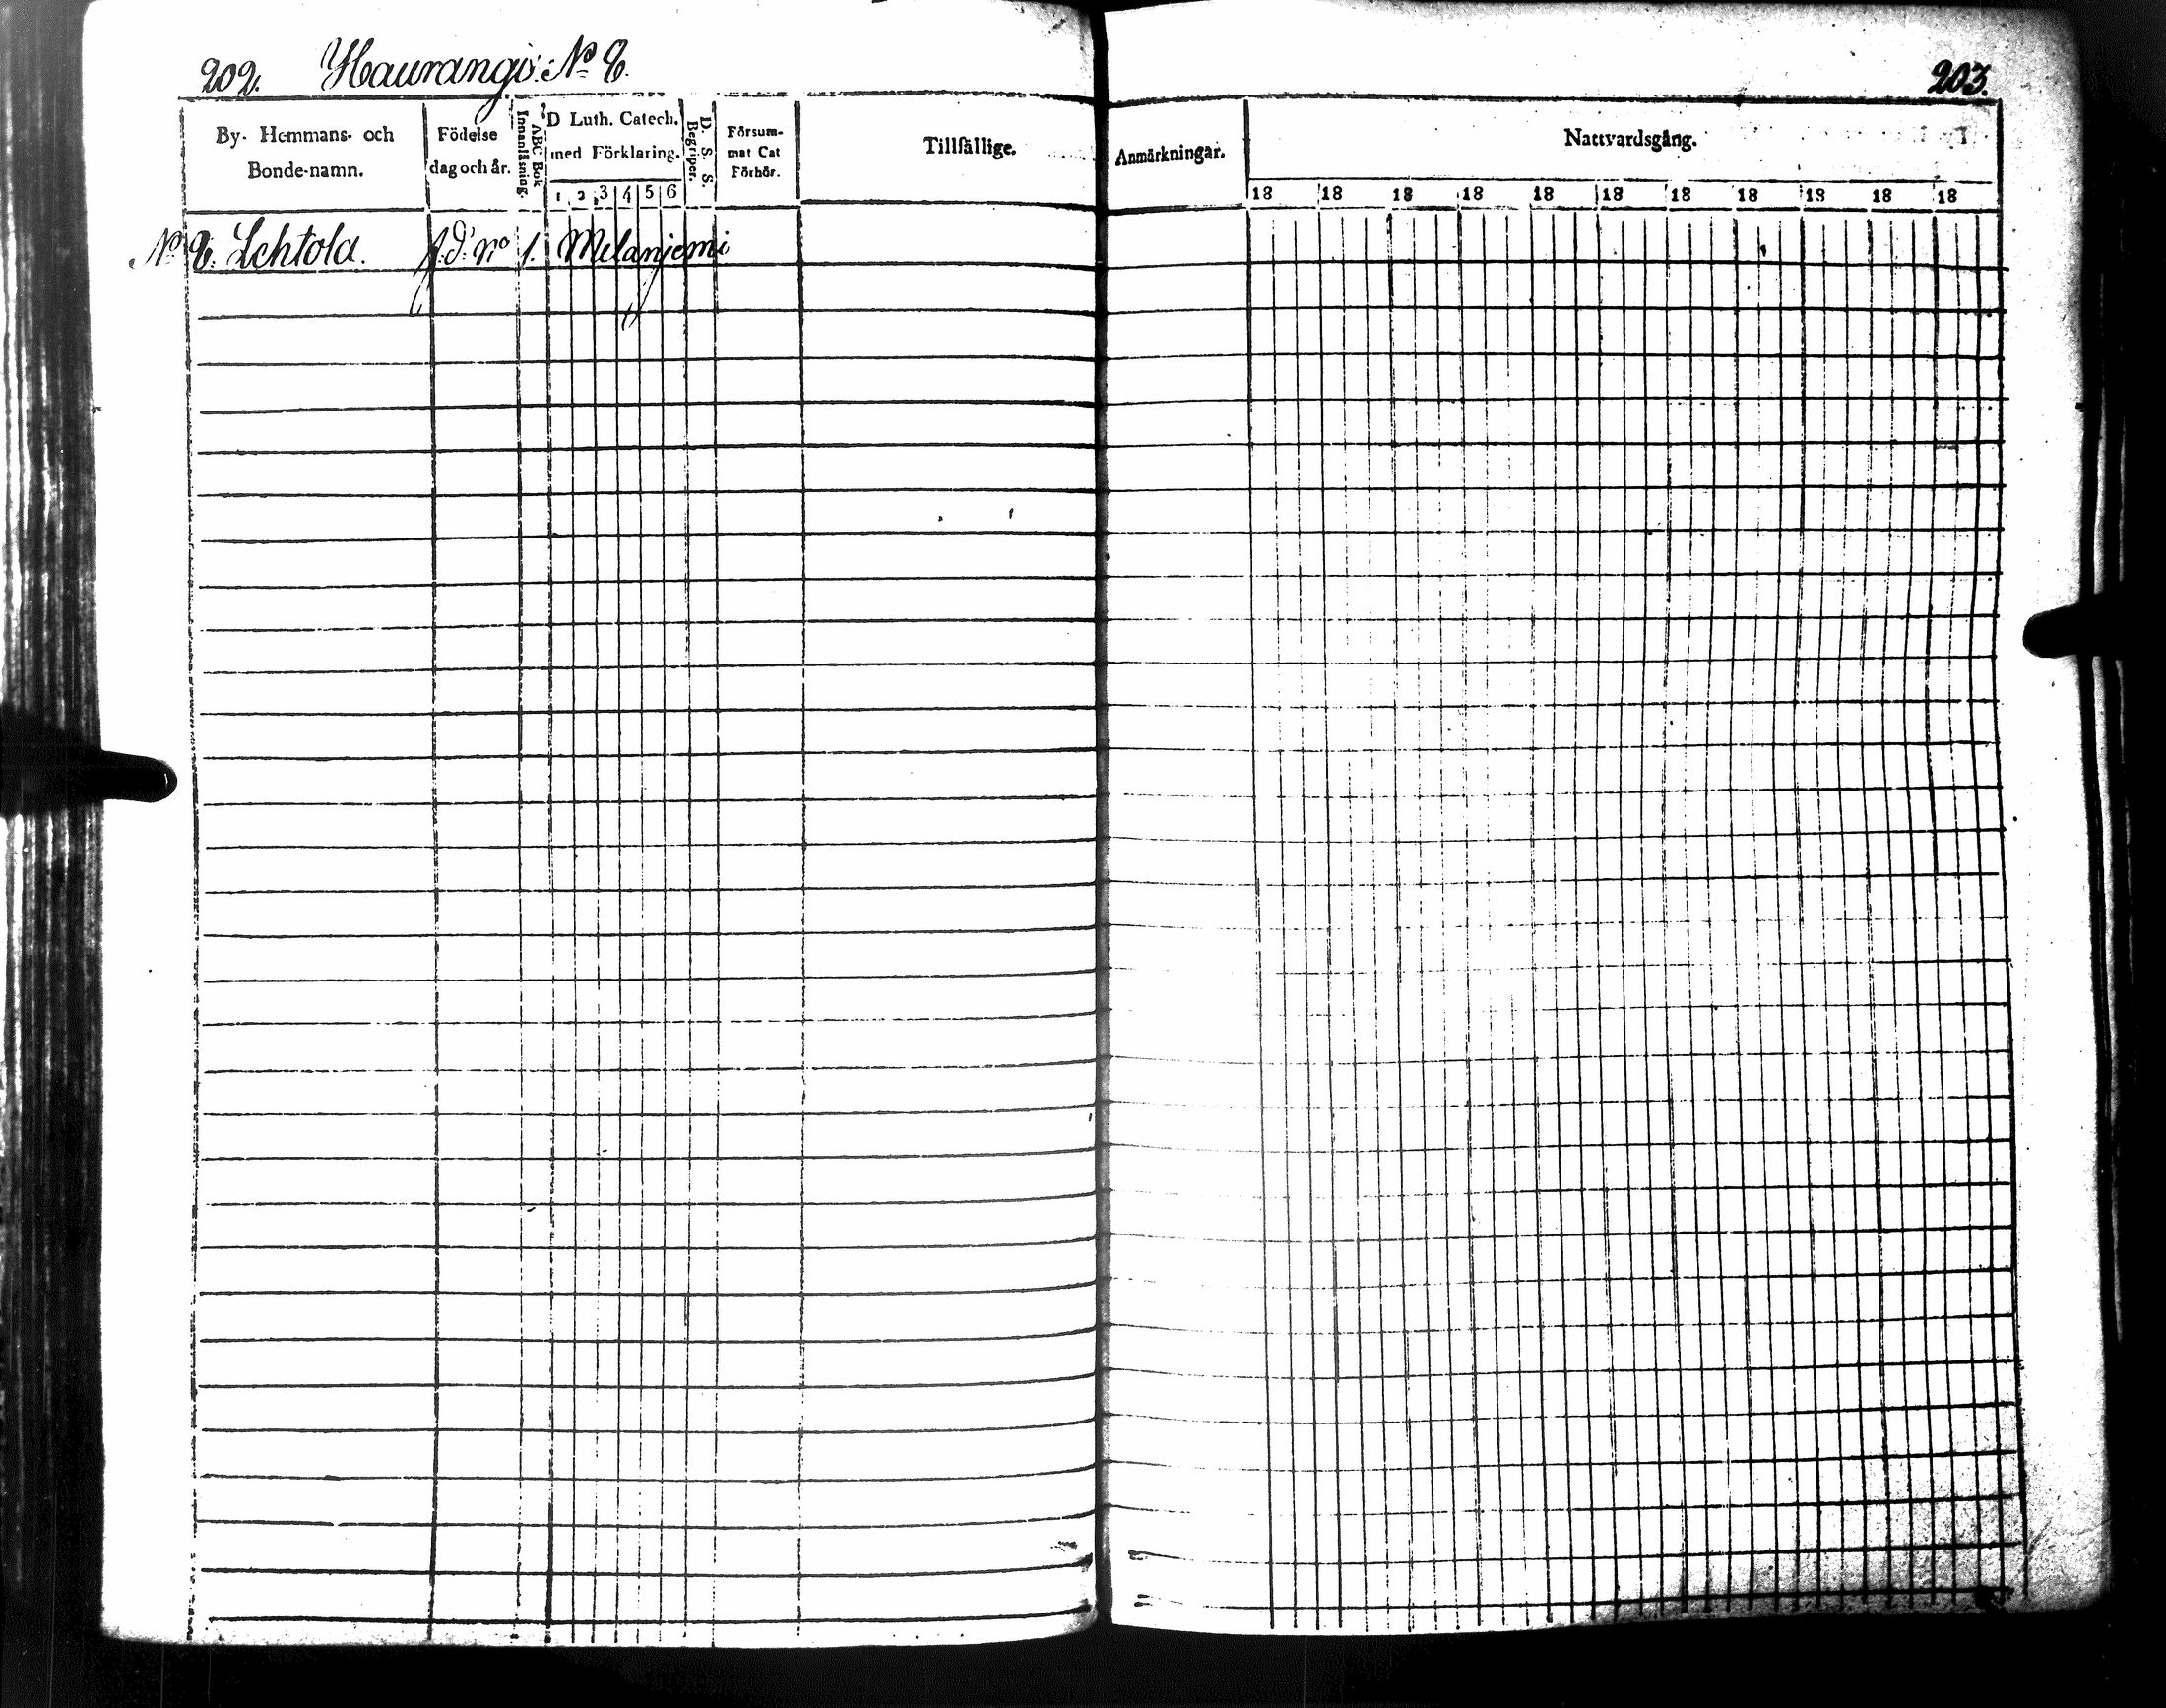 202. Haurangi: No 8.
203.
By- Hemmans- och
Bonde-namn.
Födelse
dag och år.
ABC Bok
Innanläsning.
D Luth. Catech.
med Förklaring.
1 2 3 4 5 6
D. S. S.
Begriper.
Försum-
mat Cat
Förhör.
Tillfällige.
Anmärkningar.
Nattvardsgång.
18 18 18 18 18 18 18 18 18 18 18
No 8. Lehtola. f. d. No 1. Melanjemi